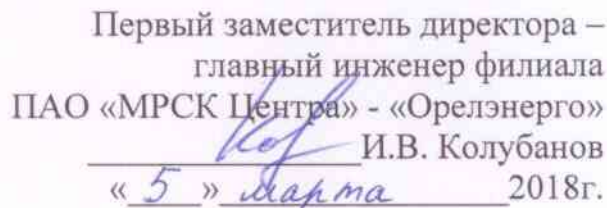 Первый заместитель директора –
главный инженер филиала
ПАО «МРСК Центра» - «Орелэнерго»
И.В. Колубанов
« 5 » марта 2018г.